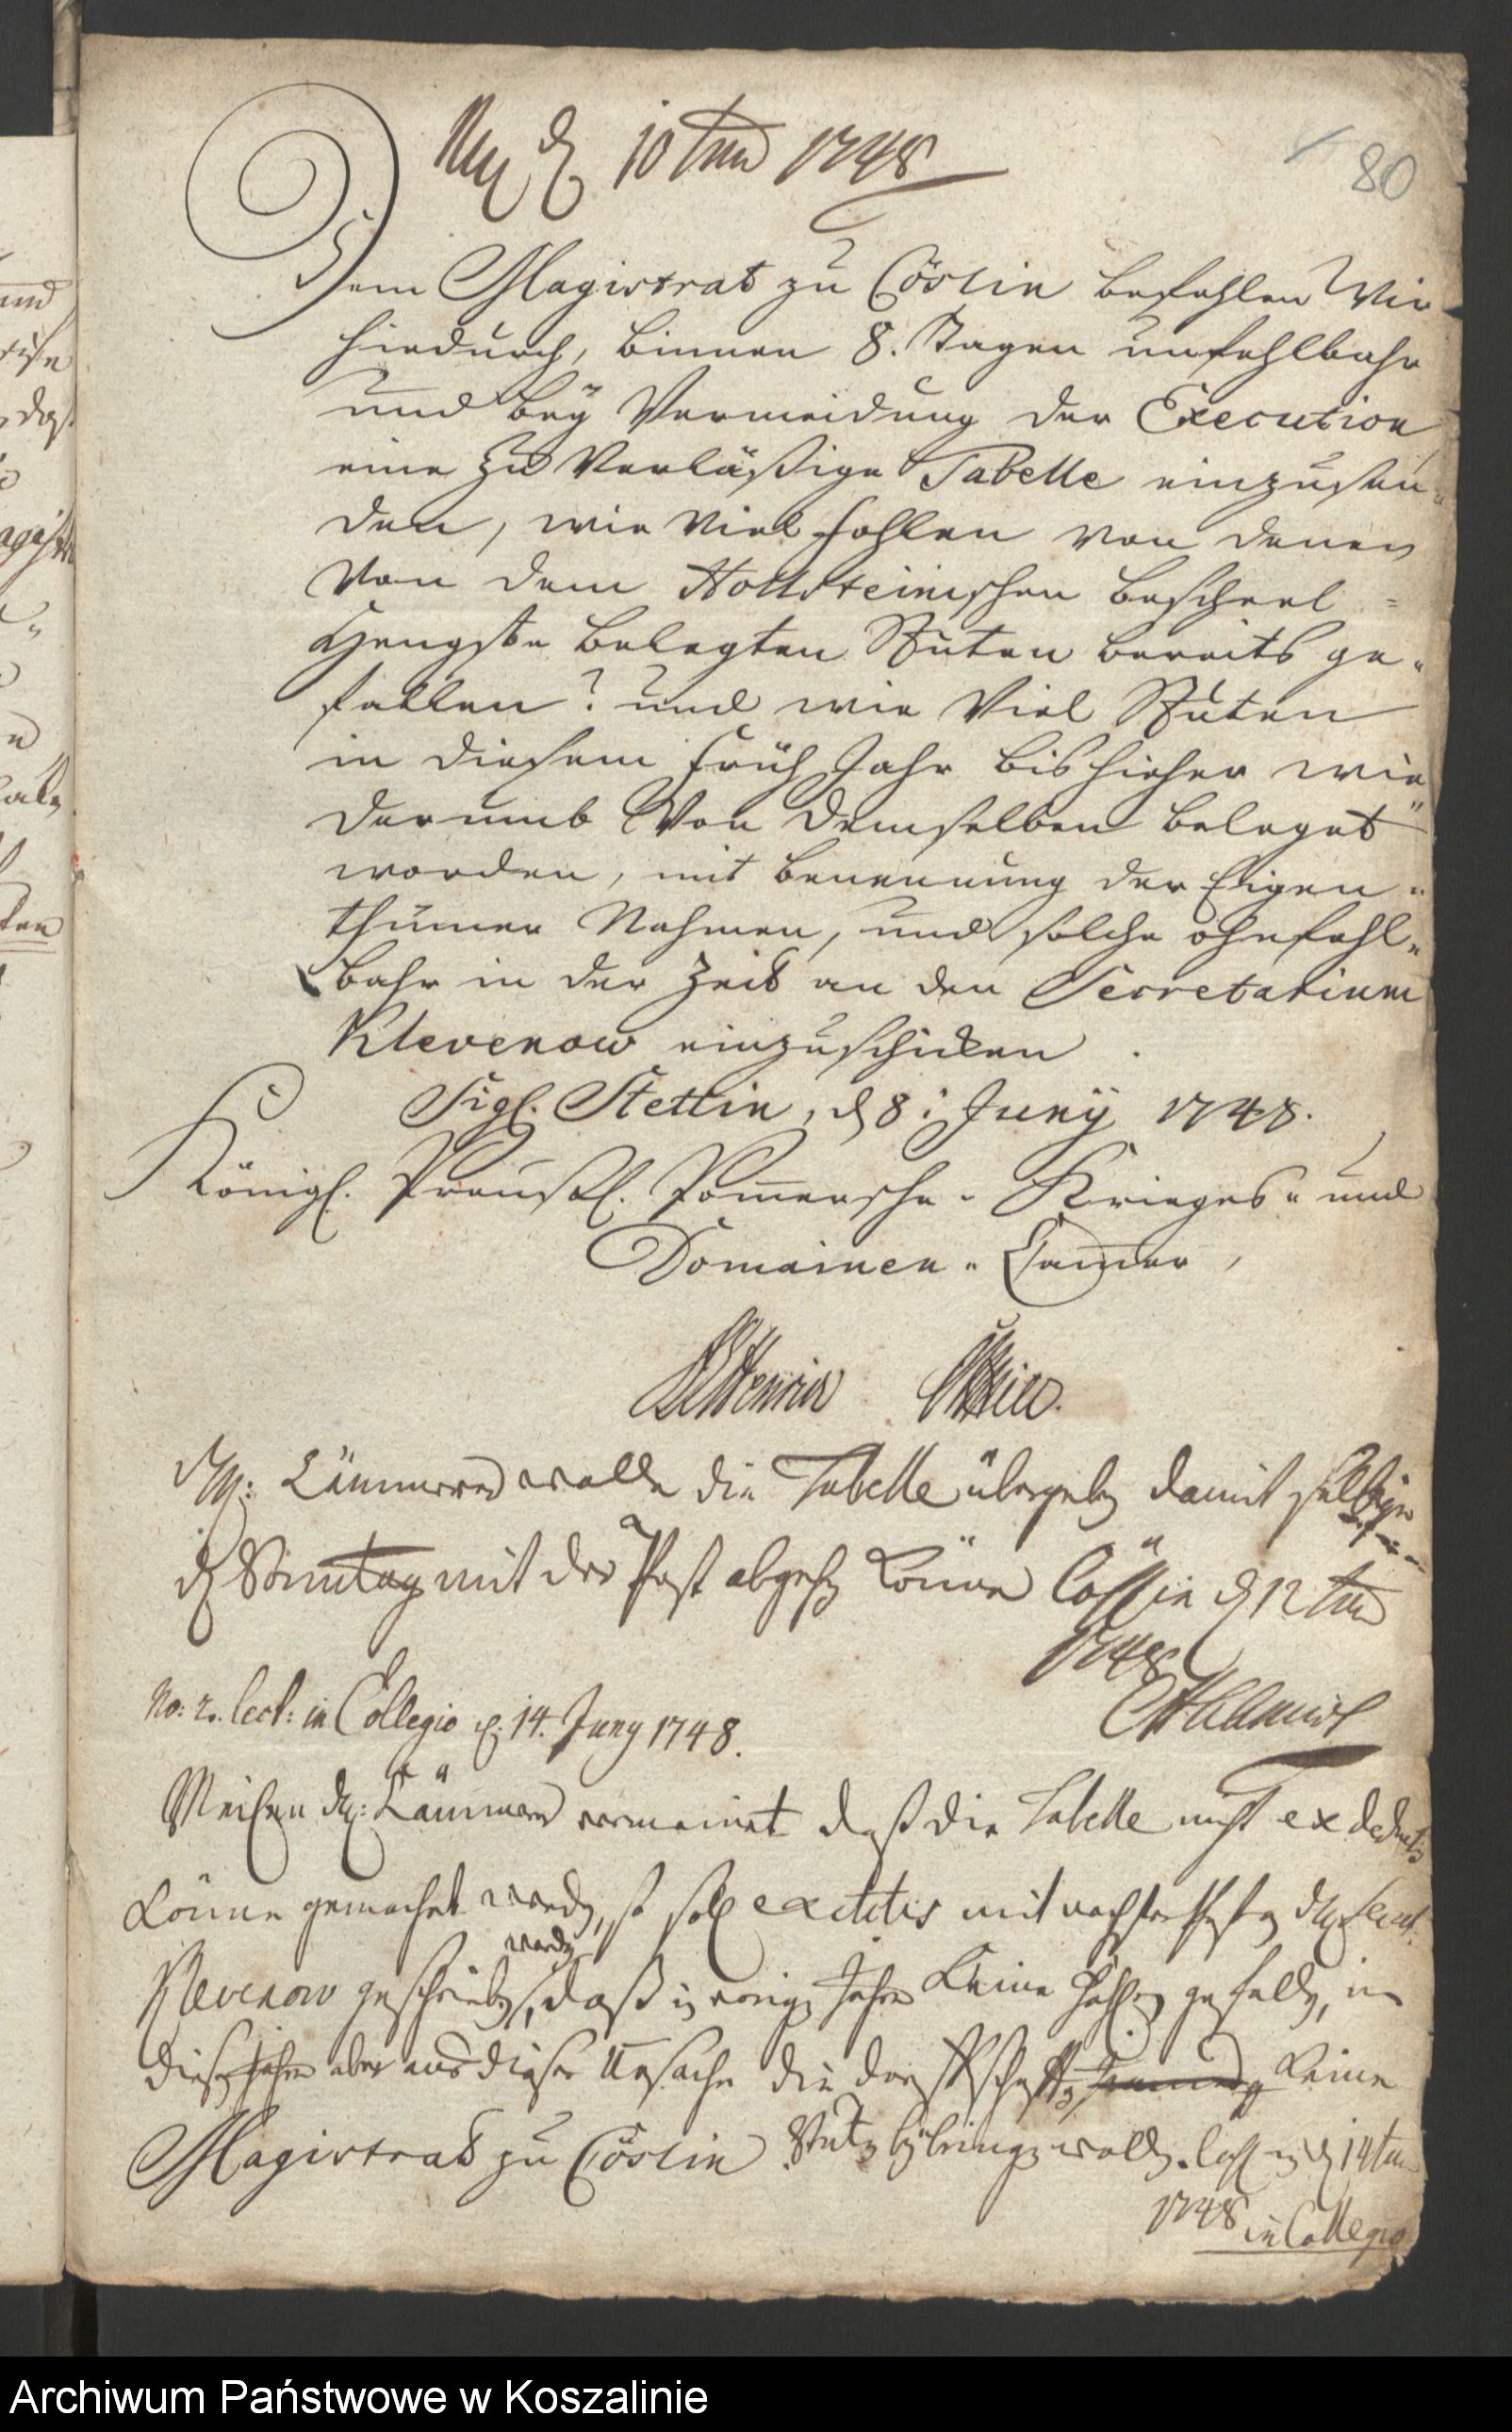 d 10ten Jun 1748
80
Dem Magistrat zu Cöslin befehlen Wir
hiedurch, binnen 8. Tagen unfehlbahr
und bey Vermeidung der Execution
eine zu Verläßige Tabelle einzusen-
den, wie Viel fohlen von denen
Von dem Hollsteinischen Bescheel-
Hengste belegten Stuten bereits ge-
fallen? und wie Viel Stuten
in diesem früh Jahr bis hieher wie-
derumb Von demselben beleget
worden, mit benennung der Eigen-
thümer Nahmen, und solche ohnfehl-
bahr in der Zeit an den Secretarium
Klevenow einzuschicken.
Sigl. Stettin, d 8. Junÿ 1748.
Königl. Preußl. Pommersche Krieges- und
Domainen-Cammer,
H: Cämmerer wolle die Tabelle übergeben damit selbige
d Sonntag mit der Post abgehen könne Cösslin d 12 Jun
1748
No: 2. lect: in Collegio d. 14. Juny 1748.
Weilen H: Cämmerer vermeinet daß die Tabelle nicht ex
könne gemachet werden, so soll mit nechster Post an H Secret:
Klevenow geschrieben werden, daß in vorigen Jahre keine Fohlen gefallen, in
diesem Jahre aber aus dieser Ursache die keine
Magistrat zu Cöslin Stuten bringen wollen. Cössl d 14 Jun
1748 in Collegio
Archiwum Państwowe w Koszalinie